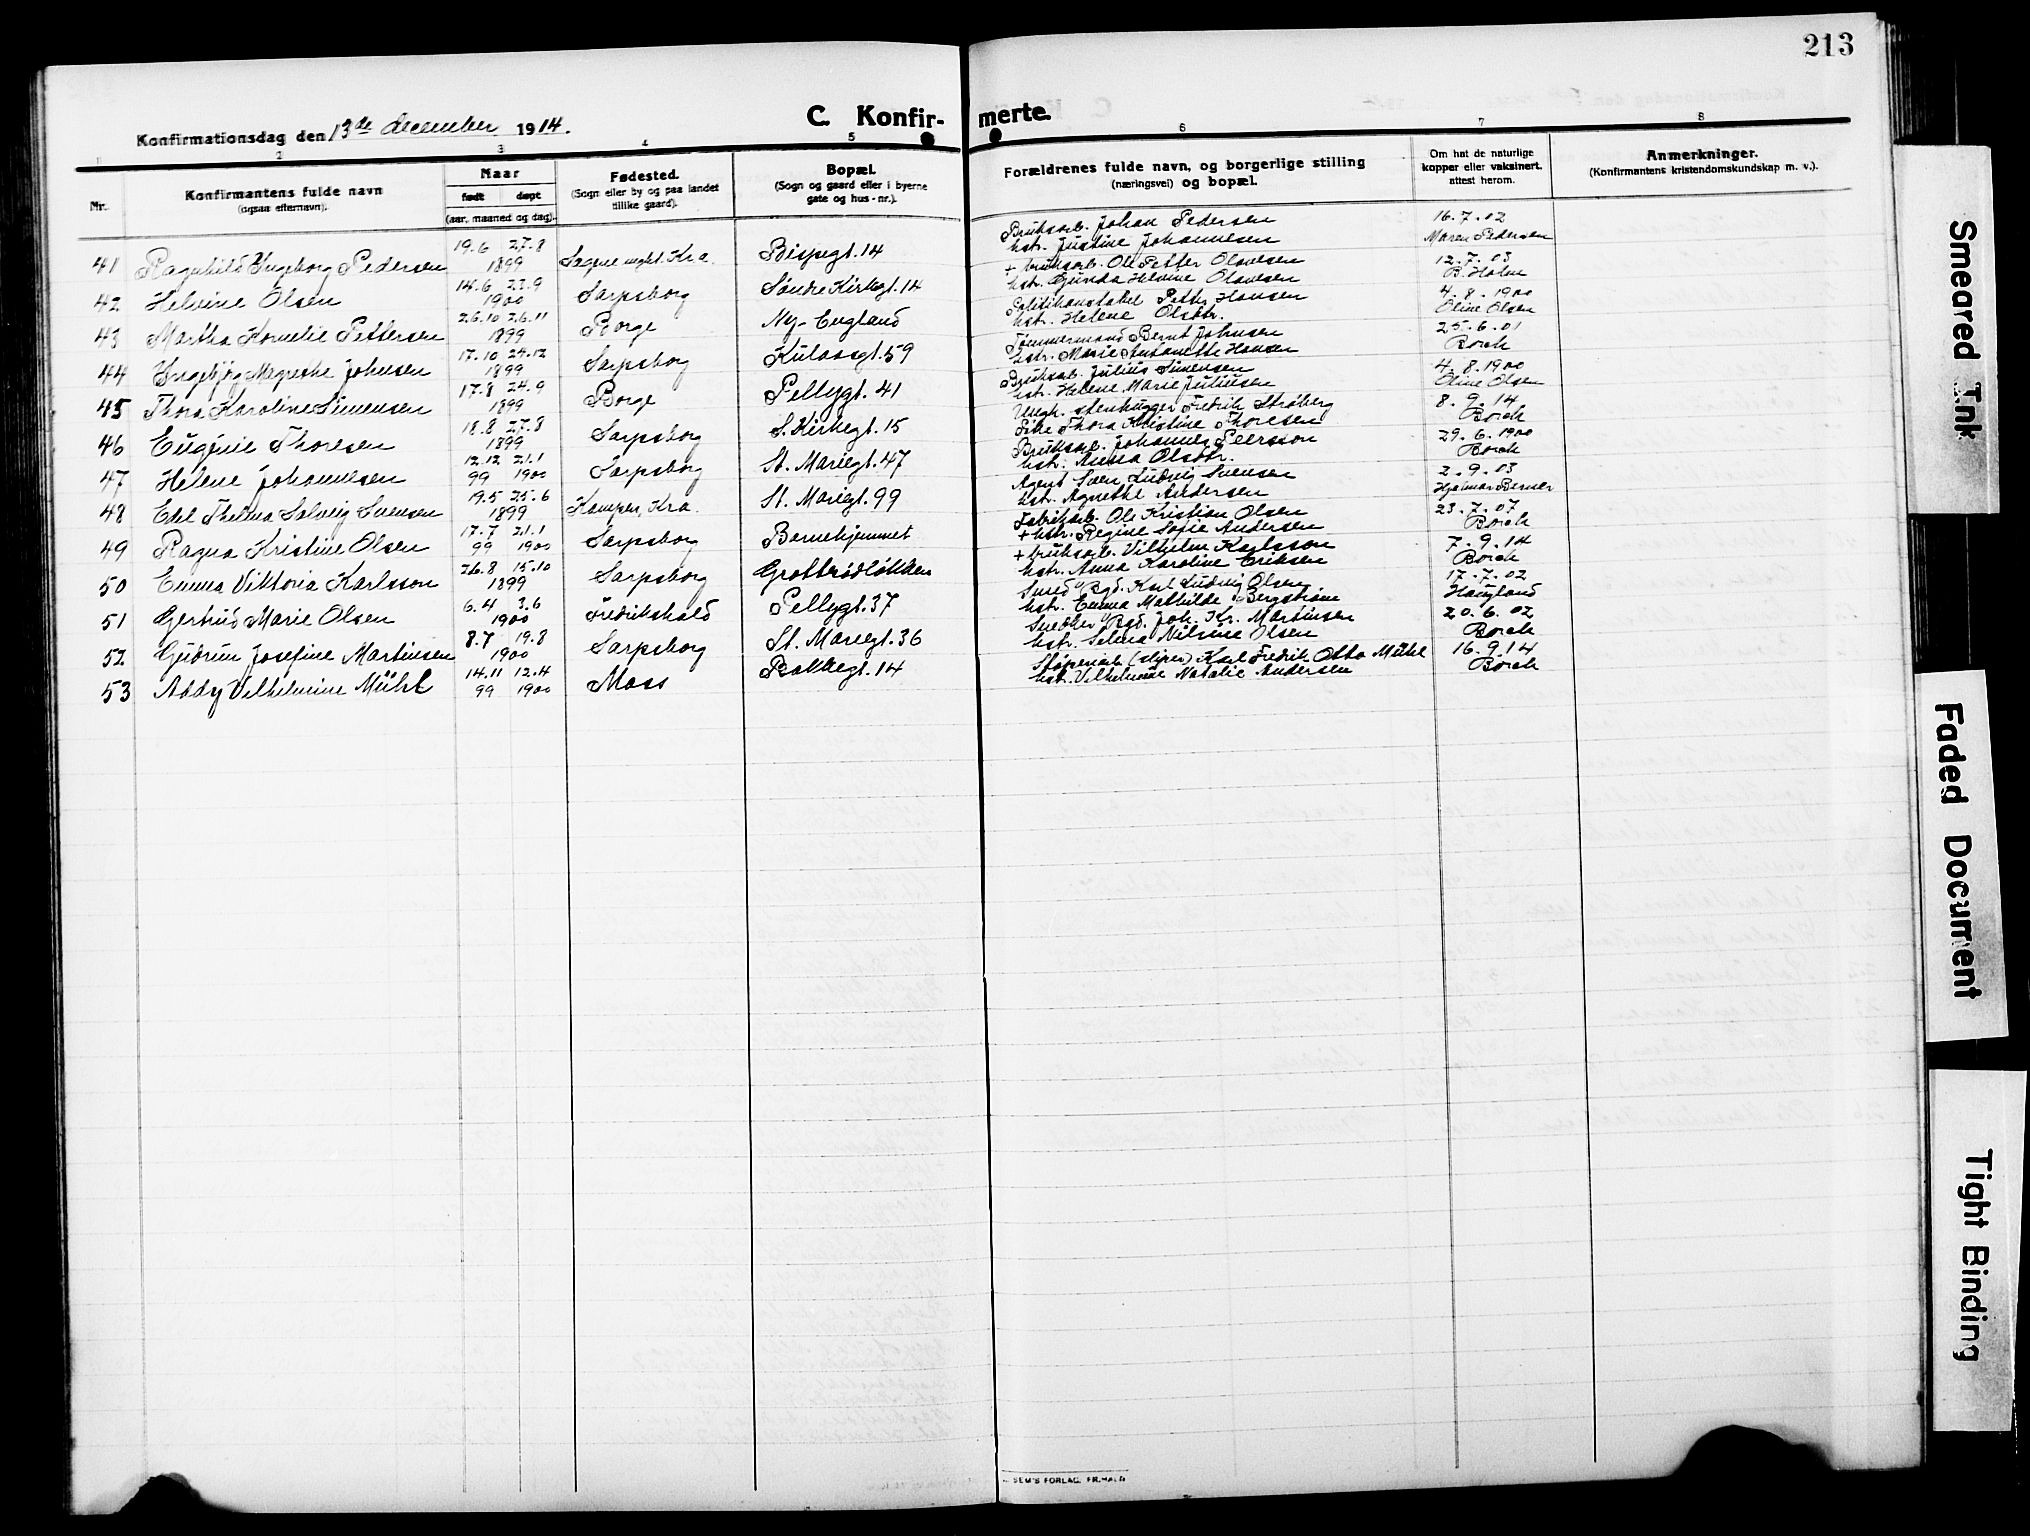 213
C. Konfir-
merte.
Konfirmationsdag den 13de december 1914.
1 2 3 4 5 6 7 8
Nr.
Konfirmantens fulde navn
(ogsaa efternavn).
Naar
født døpt
(aar, maaned og dag).
Fødested.
(Sogn eller by og paa landet
tillike gaard).
Bopæl.
(Sogn og gaard eller i byerne
gate og hus-nr.).
Forældrenes fulde navn, og borgerlige stilling
(næringsvei) og bopæl.
Om hat de naturlige
kopper eller vaksinert.
attest herom.
Anmerkninger.
(Konfirmantens kristendomskundskap m. v.).
41 Ragnhild Ingeborg Pedersen 19.6 1899 27.8 Sagene Kra. Bispegt. 14 Bruksarb. Johan Pedersen
hstr. Justine Johannesen 16.7.02 Maren Pedersen
42 Helvine Olsen 14.6 23.9 1900 Sarpsborg Søndre Kirkegt. 14 + bruksarb. Ole Petter Olavesen
hstr. Gunda Helvine Olavesen 12.7.03 B. Holm
43 Martha Kornelie Pettersen 26.10 26.11 1899 Borge Ny-England Politikonstabel Petter Hansen
hstr. Helene Olsdtr. 4.8.1900 Oline Olsen
44 Ingebjøg Magrethe Johnsen 17.10 24.12 1899 Sarpsborg Kulaasgt. 59 Tømmermand Bernt Johnsen
hstr. Marie Antonette Hansen 25.6.01 Borch
45 Thora Karoline Simensen 17.8 24.9 1899 Borge Pellygt. 41 Bruksarb. Julius Simensen
hstr. Helene Marie Juliusen 4.8.1900 Oline Olsen
46 Eugenie Thoresen 18.8 27.8 1899 Sarpsborg S. Kirkegt. 15 Ungk. stenhugger Fredrik Strøberg
Pike Thora Kristine Thoresen 8.9.14 Borch
47 Helene Johannesen 12.12 99 21.1 1900 Sarpsborg St. Mariegt. 47 Bruksarb. Johannes Peersson
hstr. Anna Olsdtr. 29.6.1900 Borch
48 Edel Thelma Solveig Svensen 19.5 25.6 1899 Kampen, Kra. St. Mariegt. 99 Agent Sven Ludvig Svensen
hstr. Agnethe Andersen 2.9.03 Hjalmar Berner
49 Ragna Kristine Olsen 17.7 99 21.1 1900 Sarpsborg Barnehjemmet Fabrikarb. Ole Kristian Olsen
+ hstr. Regine Sofie Andersen 23.7.07 Borch
50 Emma Viktoria Karlsson 26.8 15.10 1899 Sarpsborg Grottrødløkken + bruksarb. Vilhelm Karlsson
hstr. Anna Karoline Eriksen 7.9.14 Borch
51 Gertrud Marie Olsen 6.4 3.6 1900 Fredrikshald Pellygt. 37 Smed Bgd. Karl Ludvig Olsen
hstr. Emma Mathilde Bergstrøm 17.7.02 Haugland
52 Gudrun Josefine Martinsen 8.7 19.8 1900 Sarpsborg St. Mariegt. 36 Snedker Bgd. Joh. Kr. Martinsen
hstr. Selma Nilsine Olsen 20.6.02 Borch
53 Addy Vilhelmine Mühl 14.11 99 12.4 1900 Moss Bakkegt. 14 Støperiarb. (sliper) Karl Fredrik Otto Mühl
hstr. Vilhelmine Natalie Andersen 16.9.14 Borch
SEM'S FORLAG, FR.HALD
Smeared Ink
Faded Document
Tight Binding